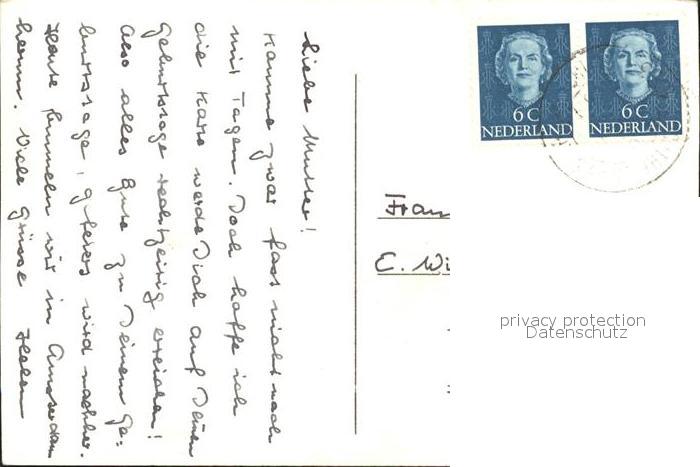 Liebe Mutter!
Komme zwar fast nicht nach
mit Tagen. Doch hoffe ich
die Karte werde Dich auf Deinen
Geburtstage rechtzeitig erreichen!
Also alles Gute zu Deinem Ge-
burtstage, gefeiert wird nachher.
Heute bummeln wir in Amsterdam
herum. Viele Grüsse
6 C
NEDERLAND
6 C
NEDERLAND
Frau
E. Wi
privacy protection
Datenschutz